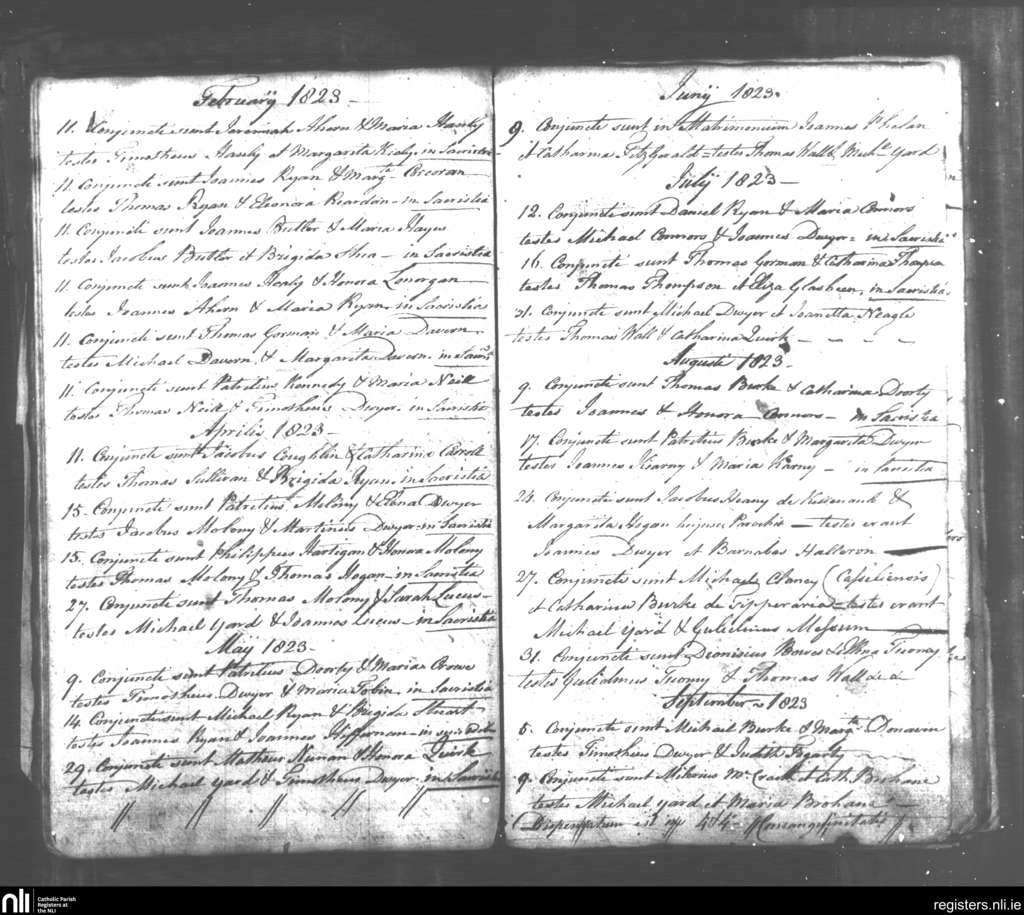 February 1823
11. Conjuncti sunt Jeremiah Ahern & Maria Hanly
testes Timotheus Hanly et Margarita Kialy, in Sacristia
11. Conjuncti sunt Joannes Ryan & Margt. Corcoran
testes Thomas Ryan & Eleonora Reardon - in Sacristia
11. Conjuncti sunt Joannes Butler & Maria Hayes
testes Jacobus Butler et Brigida Shea - in Sacristia
11. Conjuncti sunt Joannes Healy & Honora Lonorgan
testes Joannes Ahern & Maria Ryan, in Sacristia
11. Conjuncti sunt Thomas Gorman & Maria Davern
testes Michael Davern & Margarita Davern. in
11. Conjuncti sunt Patritius Kennedy & Maria Neill
testes Thomas Neill & Timotheus Dwyer. in Sacristia
Aprilis 1823 -
11. Conjuncti sunt Jacobus Coughlin & Catharina Carroll
testes Thomas Sullivan & Brigida Ryan, in Sacristia
15. Conjuncti sunt Patritius Molony & Dwyer
testes Jacobus Molony & Martinus Dwyer - in Sacristia
15. Conjuncti sunt Philippus Hartigan & Honora Molony
testes Thomas Molony & Thomas Hogan - in Sacristia
27. Conjuncti sunt Thomas Molony & Sarah Lucus -
testes Michael Yard & Joannes Lucus - in Sacristia
May 1823 -
9. Conjuncti sunt Patritius Doorty & Maria Crowe
testes Timotheus Dwyer & Maria Tobin, in Sacristia
14. Conjuncti sunt Michael Ryan & Brigida Stuart
testes Joannes Ryan & Joannes Heffernan - in
29. Conjuncti sunt Matheus Nunan & Honora Quirk
testes Michael Yard & Timotheus Dwyer. in Sacristia
Junij 1823.
9. Conjuncti sunt in Matrimonium Joannes Phelan
et Catharina FitzGerald = testes Thomas Wall & Michl. Yard
July 1823 -
12. Conjuncti sunt Daniel Ryan & Maria Connors
testes Michael Connors & Joannes Dwyer = in Sacristia
16. Conjuncti sunt Thomas Gorman & Catharina
testes Thomas Thompson et Eliza Glasheen, in Sacristia
21. Conjuncti sunt Michael Dwyer et Joanetta Neagle
testes Thomas Wall & Catharina Quirk -
Augusti 1823 -
9. Conjuncti sunt Thomas Burke & Catharina Doorty
testes Joannes & Honora Connors - in Sacristia
17. Conjuncti sunt Patritius Burke & Margarita Dwyer
testes Joannes Kearny & Maria Karny - in Sacristia
24. Conjuncti sunt Jacobus Heany de &
Margarita Hogan hujus Parochia - testes erant
Joannes Dwyer et Barnabas Halloron
27. Conjuncti sunt Michael Clancy (Casseliensis)
et Catharina Burke de Tipperaria = testes erant
Michael Yard & Gulielmus
31. Conjuncti sunt Dionisius Bowes & Tuomy
testes Gulielmus Tuomy & Thomas Wall
September 1823
5. Conjuncti sunt Michael Burke & Margta. Donavin
testes Timotheus Dwyer & Judith Fogarty
9. Conjuncti sunt McCrack et Cath. Brohane
testes Michael Yard et Maria Brohane -
Dispensatum est 4 & 4 Consanguinitatis
nli
Catholic Parish
Registers at
the NLI
registers.nli.ie